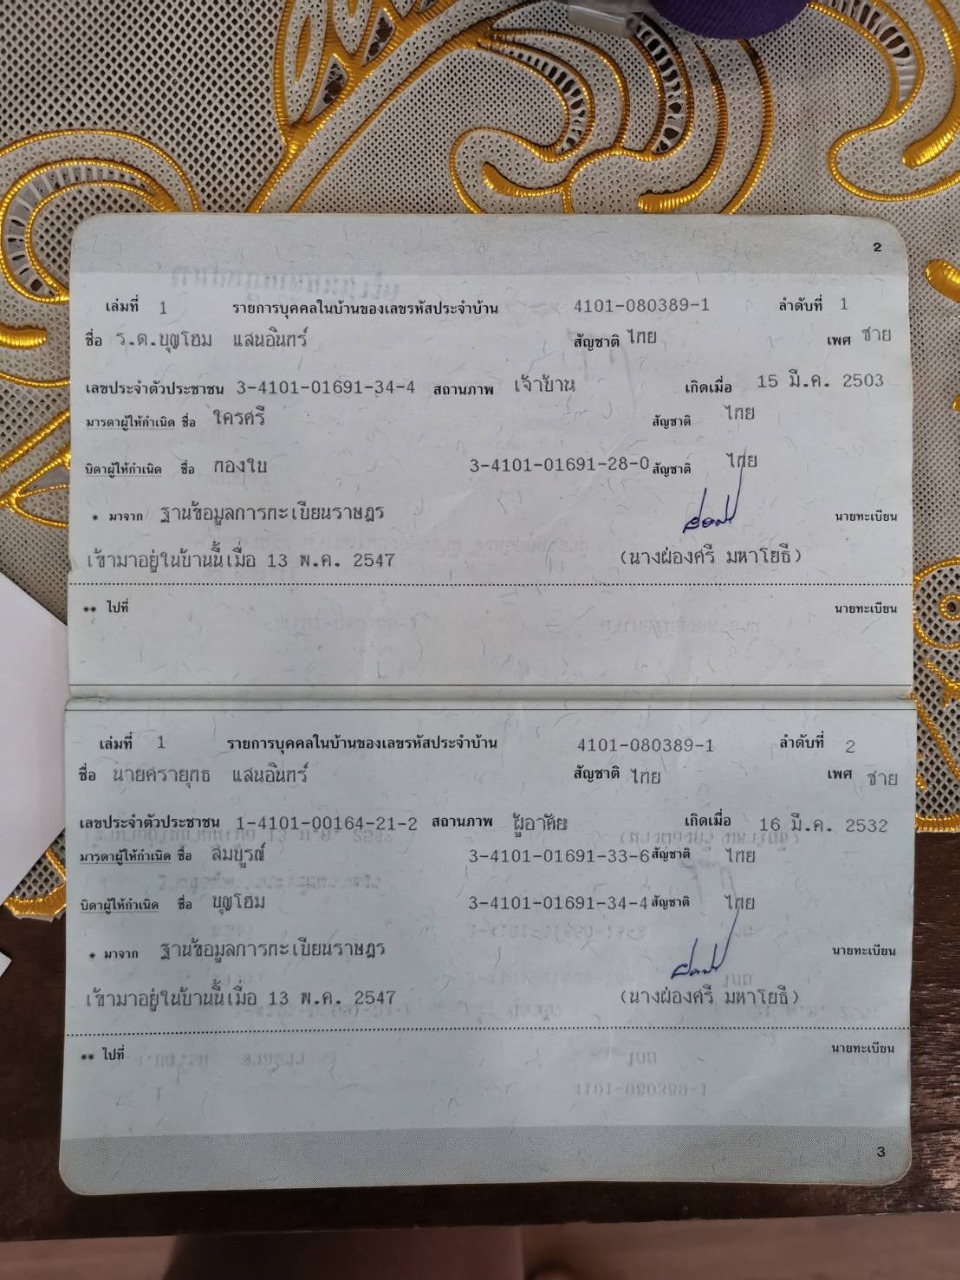 2
เล่มที่ 1 รายการบุคคลในบ้านของเลขรหัสประจำบ้าน 4101-080389-1 ลำดับที่ 1
ชื่อ ร.ต.บุญโฮม แสนอินทร์ สัญชาติ ไทย เพศ ชาย
เลขประจำตัวประชาชน 3-4101-01691-34-4 สถานภาพ เจ้าบ้าน เกิดเมื่อ 15 มี.ค. 2503
มารดาผู้ให้กำเนิด ชื่อ ใครศรี สัญชาติ ไทย
บิดาผู้ให้กำเนิด ชื่อ ทองใบ 3-4101-01691-28-0 สัญชาติ ไทย
* มาจาก ฐานข้อมูลการทะเบียนราษฎร นายทะเบียน
เข้ามาอยู่ในบ้านนี้เมื่อ 13 พ.ค. 2547 (นางผ่องศรี มหาโยธี)
** ไปที่ นายทะเบียน
เล่มที่ 1 รายการบุคคลในบ้านของเลขรหัสประจำบ้าน 4101-080389-1 ลำดับที่ 2
ชื่อ นายศรายุทธ แสนอินทร์ สัญชาติ ไทย เพศ ชาย
เลขประจำตัวประชาชน 1-4101-00164-21-2 สถานภาพ ผู้อาศัย เกิดเมื่อ 16 มี.ค. 2532
มารดาผู้ให้กำเนิด ชื่อ สมบูรณ์ 3-4101-01691-33-6 สัญชาติ ไทย
บิดาผู้ให้กำเนิด ชื่อ บุญโฮม 3-4101-01691-34-4 สัญชาติ ไทย
* มาจาก ฐานข้อมูลการทะเบียนราษฎร นายทะเบียน
เข้ามาอยู่ในบ้านนี้เมื่อ 13 พ.ค. 2547 (นางผ่องศรี มหาโยธี)
** ไปที่ นายทะเบียน
3